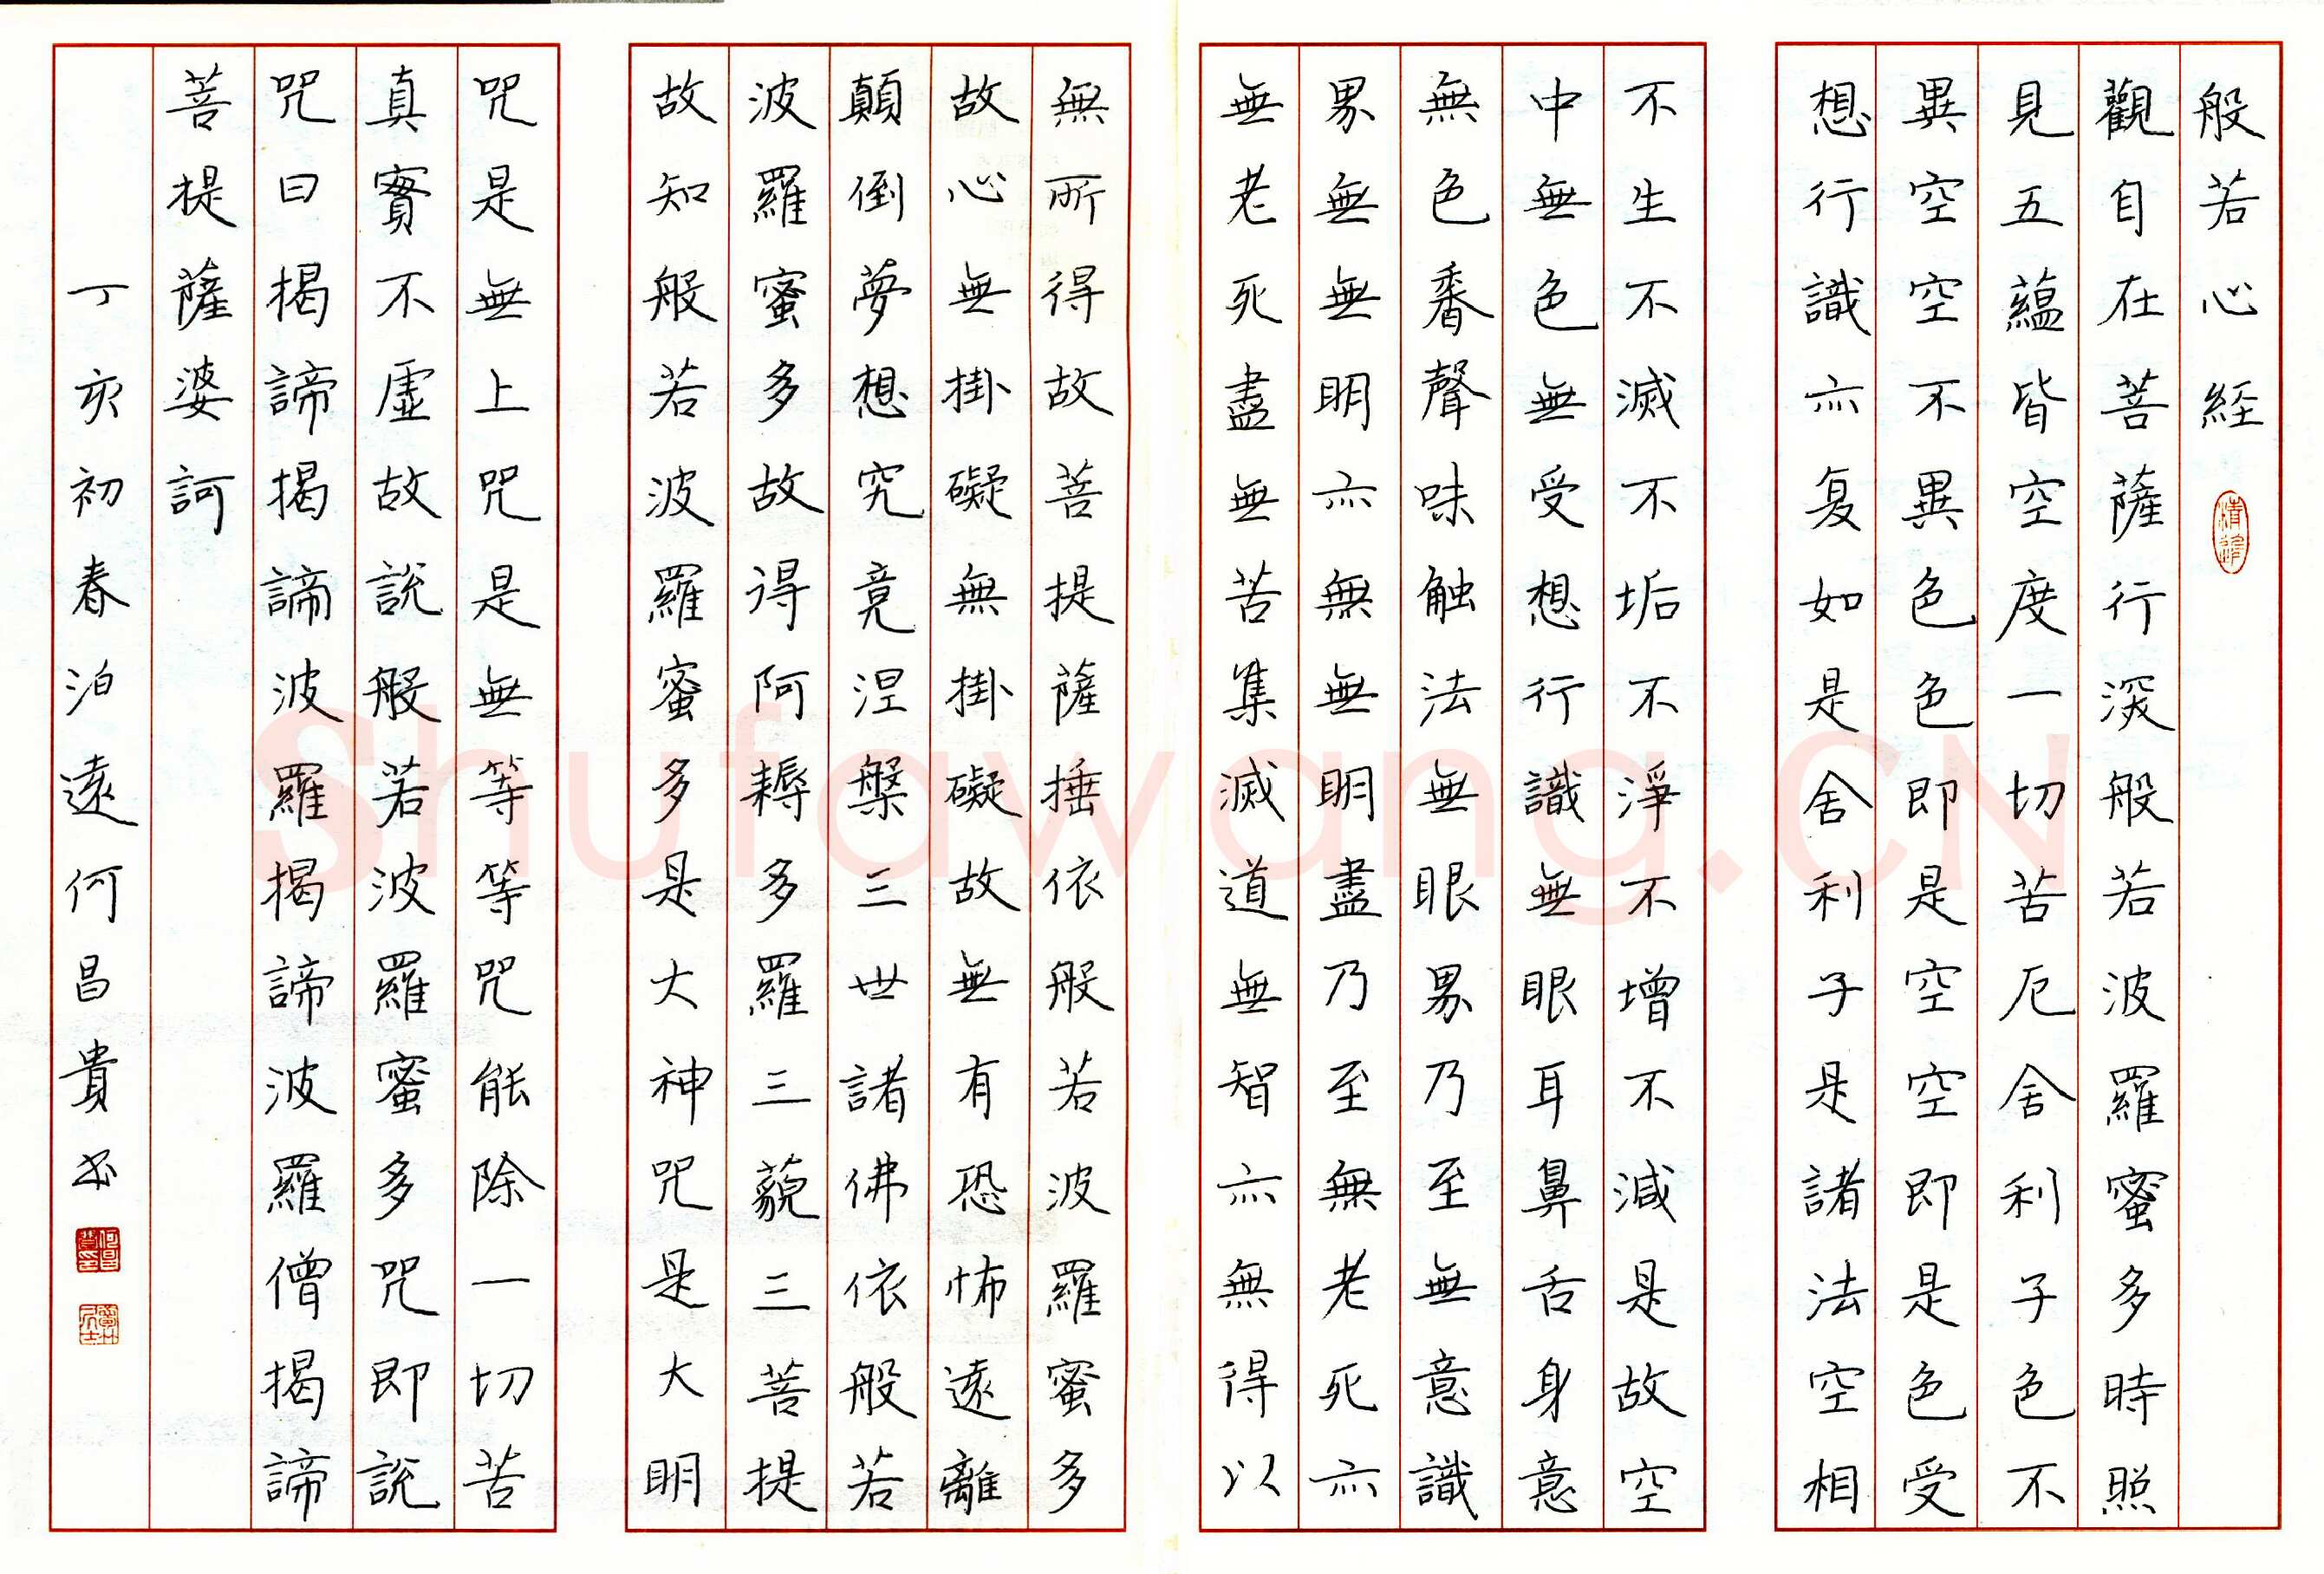 般若心経
觀自在菩薩行深般若波羅蜜多時照
見五蘊皆空度一切苦厄舍利子色不
異空空不異色色即是空空即是色受
想行識亦复如是舍利子是諸法空相
不生不滅不垢不淨不增不減是故空
中無色無受想行識無眼耳鼻舌身意
無色香聲味触法無眼界乃至無意識
界無無明亦無無明盡乃至無老死亦
無老死盡無苦集滅道無智亦無得以
無所得故菩提薩捶依般若波羅蜜多
故心無掛礙無掛礙故無有恐怖遠離
顛倒夢想究竟涅槃三世諸佛依般若
波羅蜜多故得阿耨多羅三藐三菩提
故知般若波羅蜜多是大神咒是大明
咒是無上咒是無等等咒能除一切苦
真實不虛故說般若波羅蜜多咒即說
咒曰揭諦揭諦波羅揭諦波羅僧揭諦
菩提薩婆訶
丁亥初春泊遠何昌貴书
Shufawang.CN